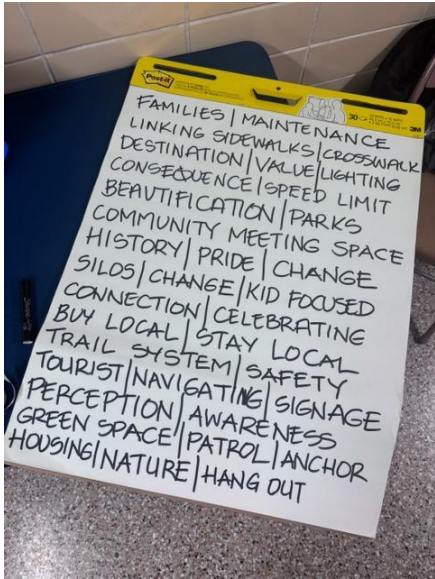 Post-it
30
3M
FAMILIES | MAINTENANCE
LINKING SIDEWALKS | CROSSWALK
DESTINATION | VALUE | LIGHTING
CONSEQUENCE | SPEED LIMIT
BEAUTIFICATION | PARKS
COMMUNITY MEETING SPACE
HISTORY | PRIDE | CHANGE
SILOS | CHANGE | KID FOCUSED
CONNECTION | CELEBRATING
BUY LOCAL | STAY LOCAL
TRAIL SYSTEM | SAFETY
TOURIST | NAVIGATING | SIGNAGE
PERCEPTION | AWARENESS
GREEN SPACE | PATROL | ANCHOR
HOUSING | NATURE | HANG OUT